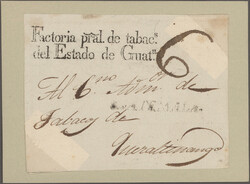 Factoria pral. de tabac.s
del Estado de Guat.a
6
Al C.no Adm.or de
Tabacos de
Quezaltenango